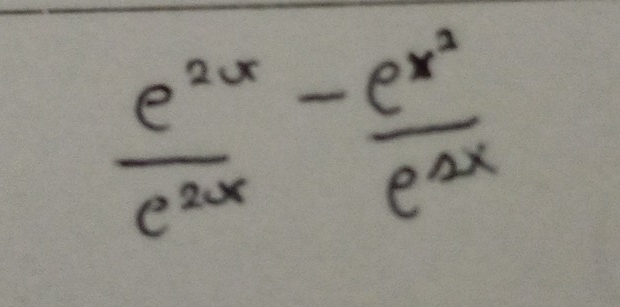 e^{2x}/e^{2x} - e^{x^2}/e^{2x}